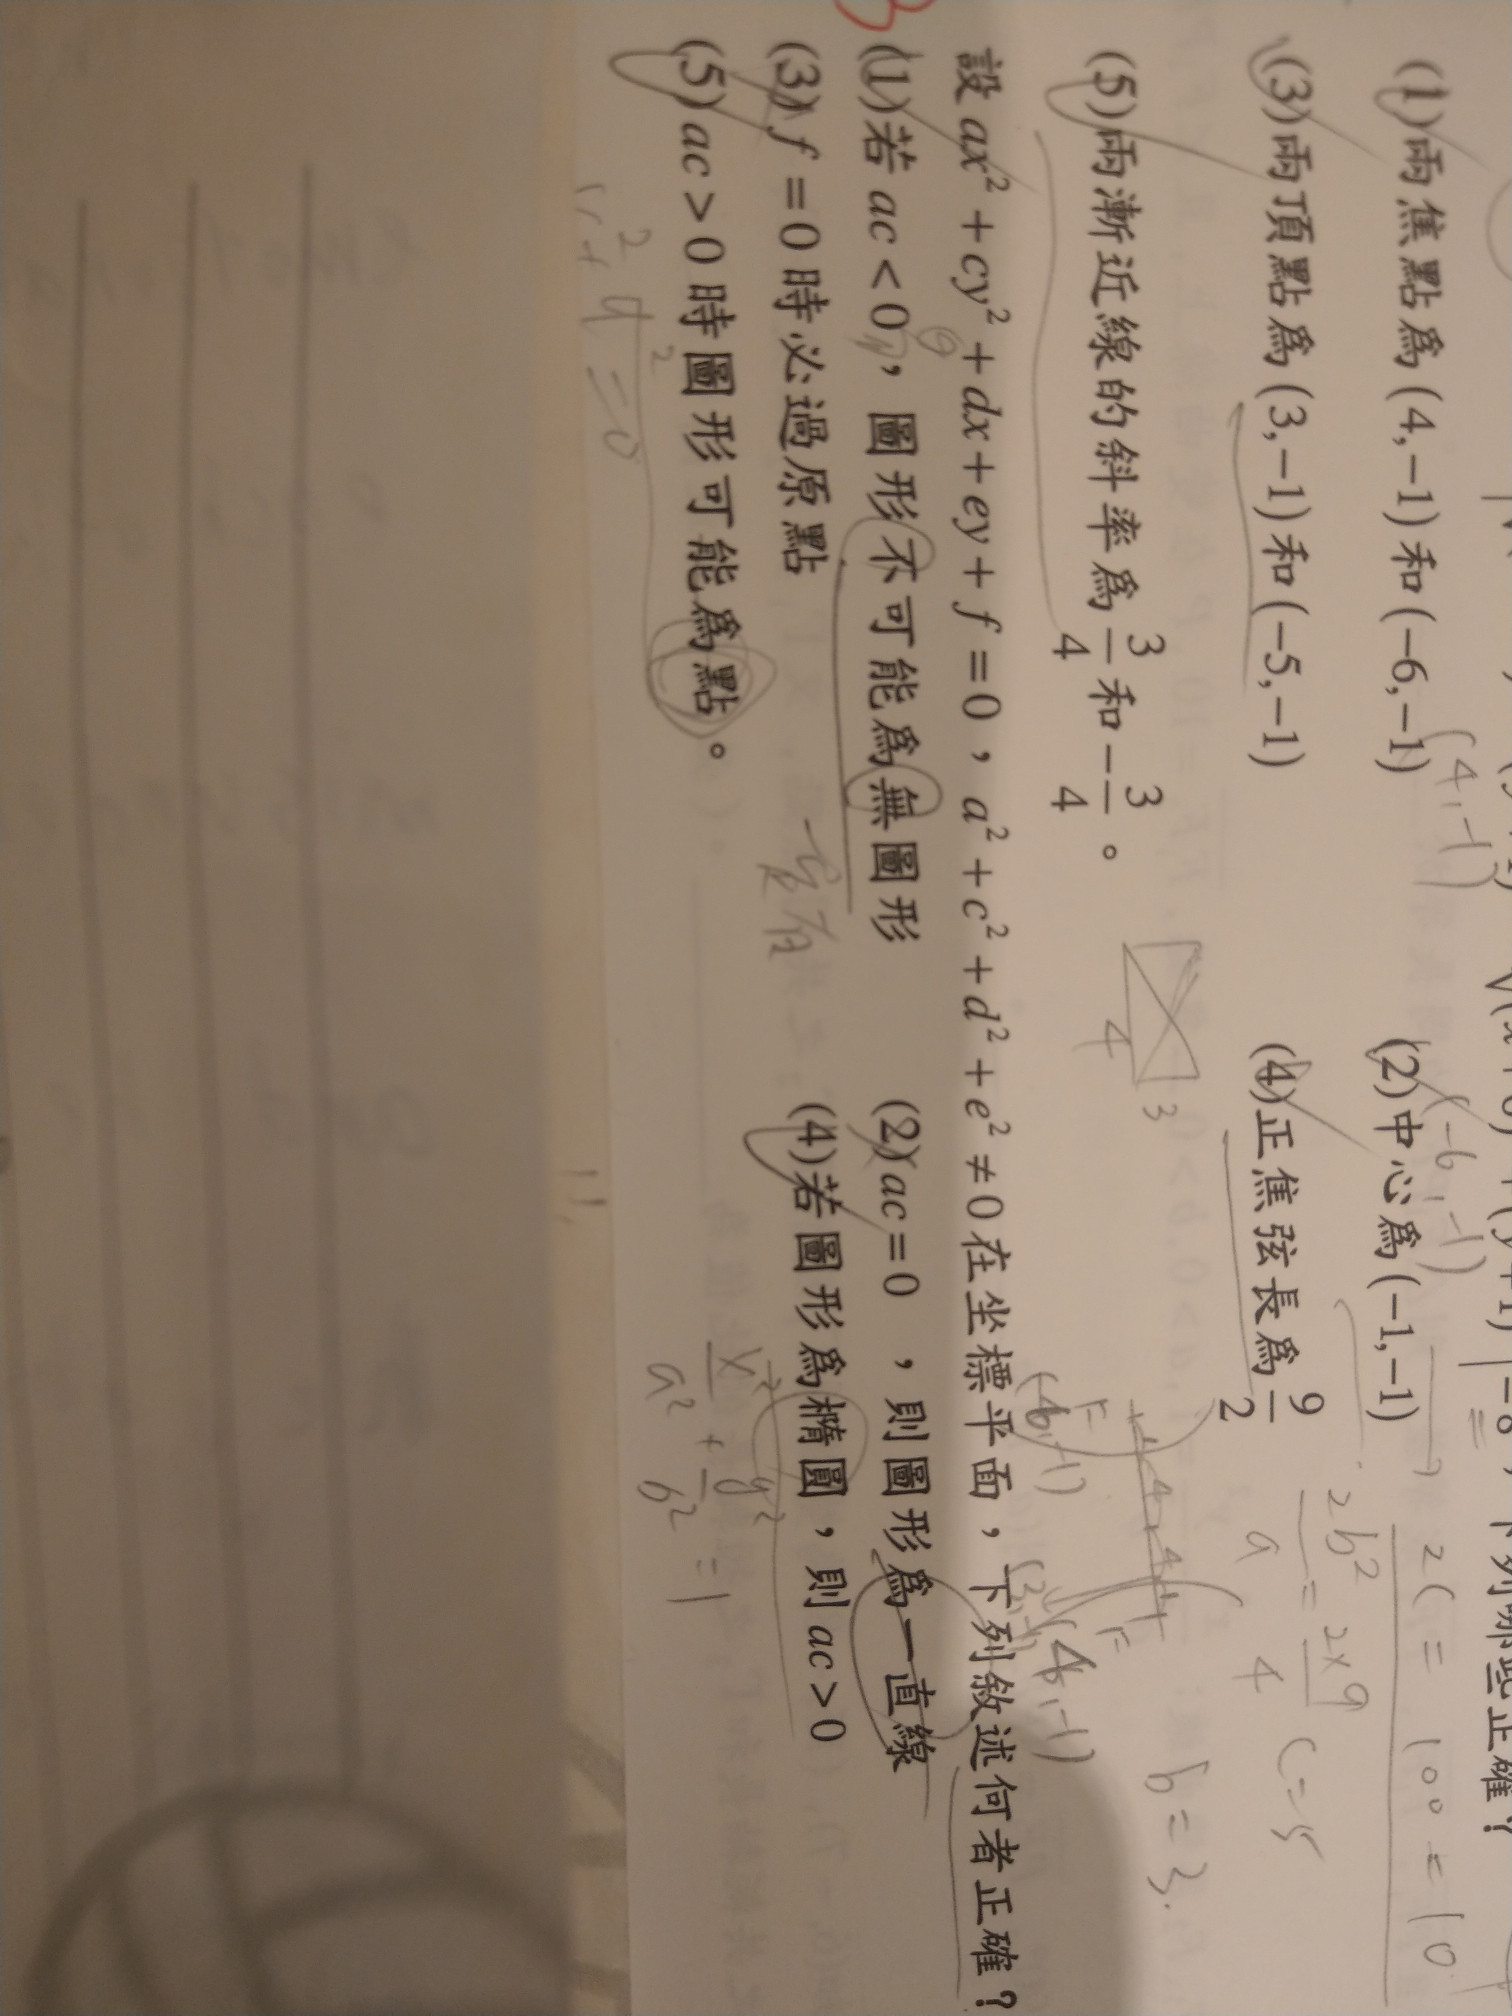 (1)兩焦點爲(4,−1)和(−6,−1) (2)中心爲(−1,−1)
(4,−1) (−6,−1)
(3)兩頂點爲(3,−1)和(−5,−1) (4)正焦弦長爲9/2
2b²/a = 2×9/4
c=5
b=3
(5)兩漸近線的斜率爲3/4和−3/4。
4 3
設ax²+cy²+dx+ey+f=0，a²+c²+d²+e²≠0在坐標平面，下列敘述何者正確？
(1)若ac<0，圖形不可能爲無圖形 (2)ac=0，則圖形爲一直線
(3)f=0時必過原點 (4)若圖形爲橢圓，則ac>0
x²/a² + y²/b² = 1
(5)ac>0時圖形可能爲點。